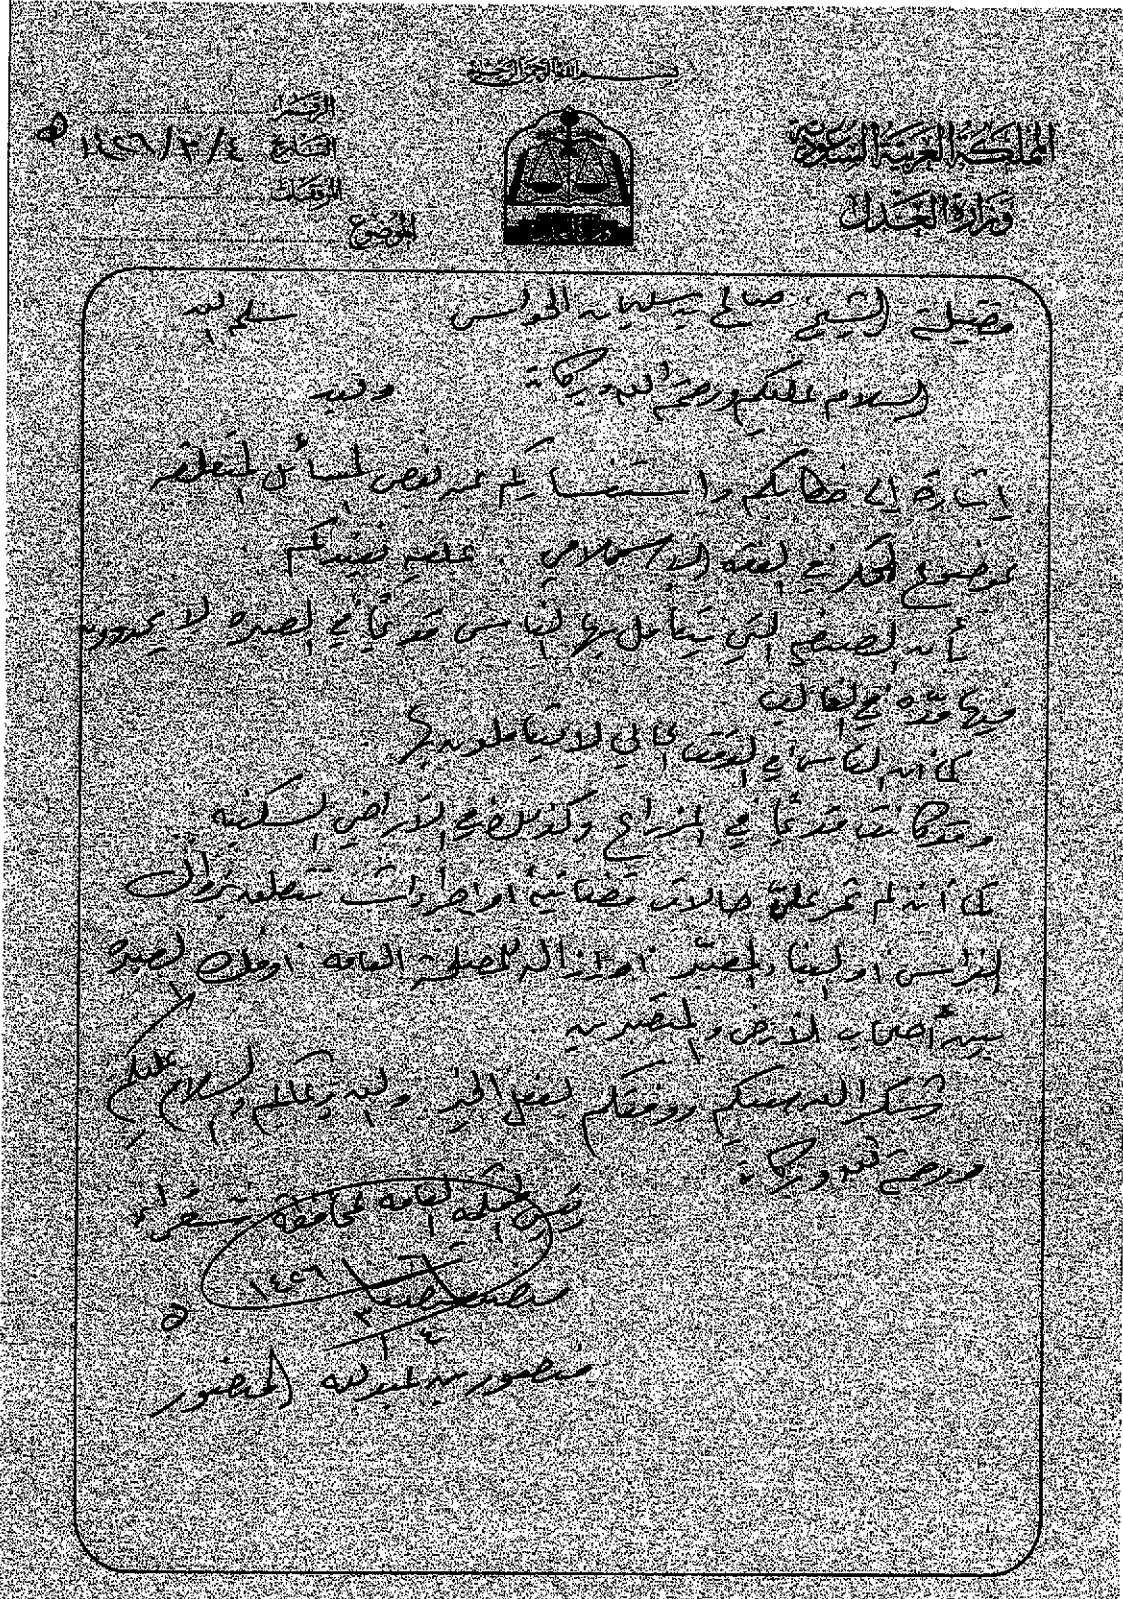 بسم الله الرحمن الرحيم
المملكة العربية السعودية
وزارة العدل
الرقم
التاريخ ٤/٣/١٤٢٦ هـ
المرفقات
الموضوع
فضيلة الشيخ صالح بن سليمان الحويس سلمه الله
السلام عليكم ورحمة الله وبركاته وبعد
إشارة إلى خطابكم واستفساركم عن بعض المسائل المتعلقة
بموضوع الحكر في الفقه الإسلامي . عليه نفيدكم
بأن الصيغة التي يتعامل بها الناس قديماً في الصبرة لا يحددون
فيها مدة في الغالب
كما أن الناس في الوقت الحالي لا يتعاملون بها
وقد كانت قديماً في المزارع وكذلك في الأراضي السكنية
كما أنه لم تمر علي حالات قضائية أو إجراءات تتعلق بزوال
الغراس أو البناء المصبر أو إزالته للمصلحة العامة أو فك الصبرة
بين أصحاب الأرض والمتصبرين
شكر الله سعيكم ووفقكم لفعل الخير والله يرعاكم والسلام عليكم
ورحمة الله وبركاته
رئيس المحكمة العامة بمحافظة شقراء
١٤٢٦ هـ
٤/٣
منصور بن عبدالله